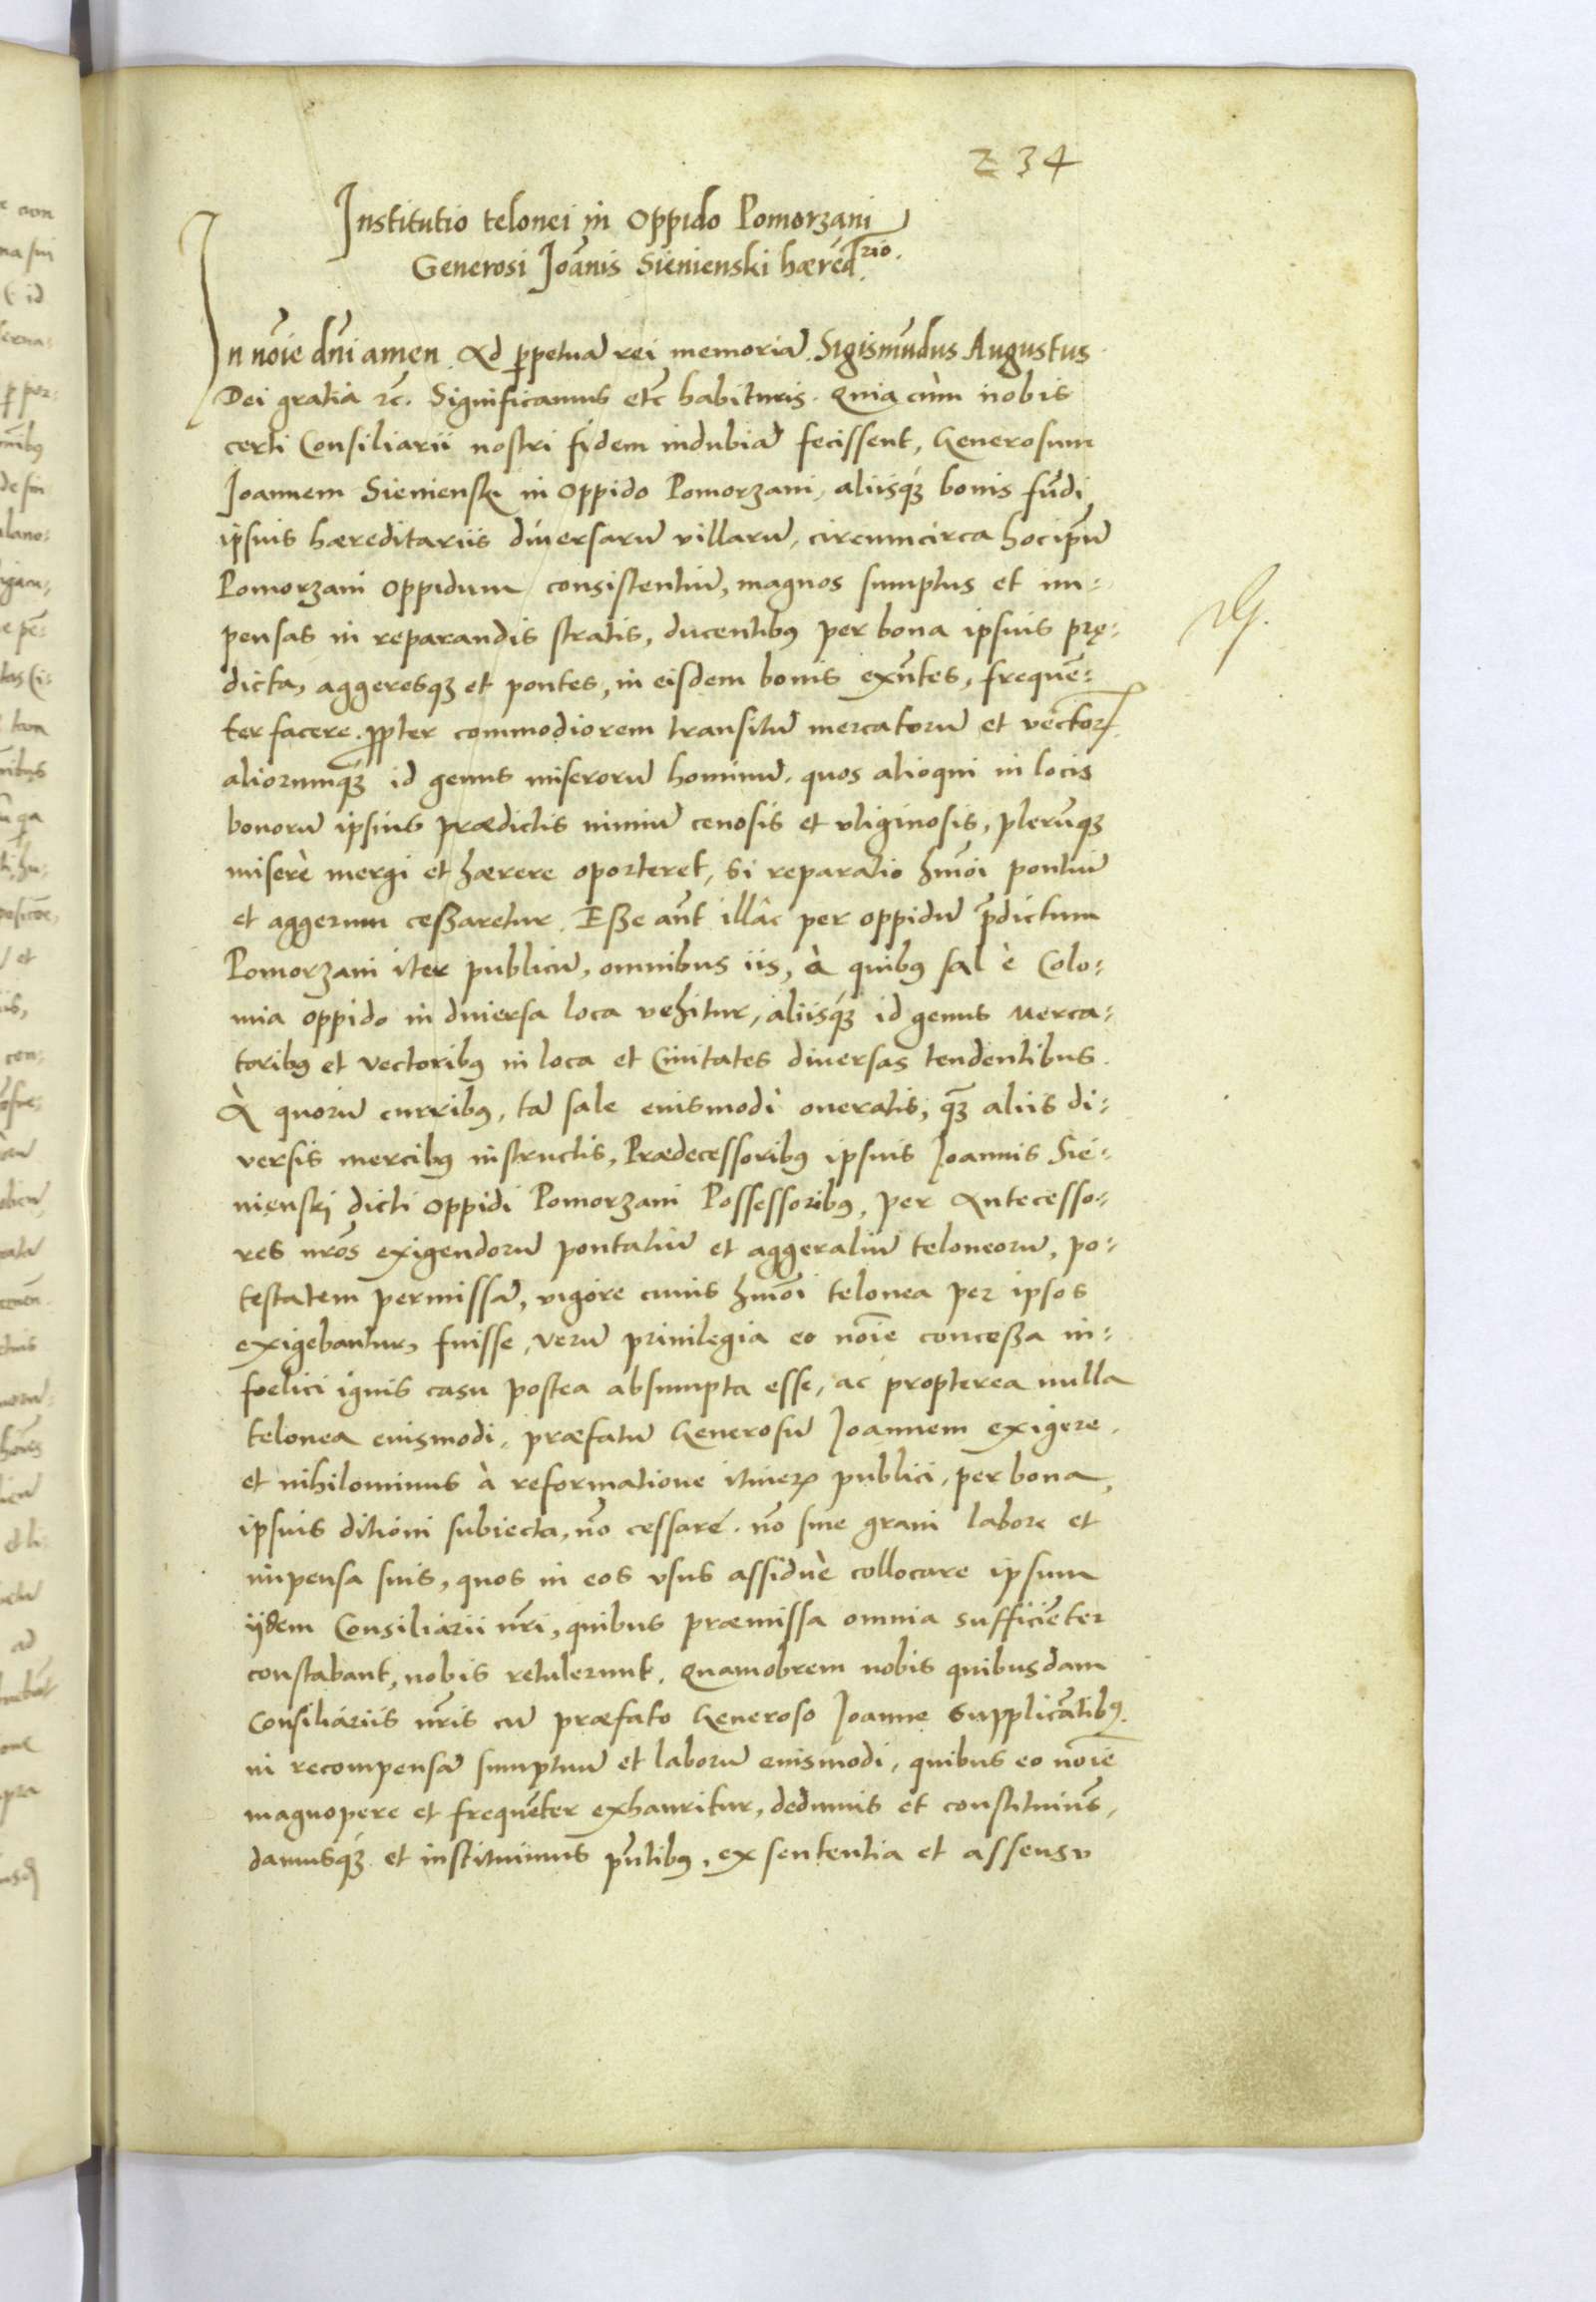 234
Institutio telonei in oppido Pomorzani
Generosi Joānis Sienienski hæred͞rio.
In nōie dn̄i amen. Ad ꝑpetuā rei memoriā. Sigismūdus Augustus
Dei gratia ꝛc̄. Significamus etc̄ habituris. Quia cùm nobis
certi Consiliarii nostri fidem indubiā fecissent, Generosum
Joannem Sienienski in oppido Pomorzani, aliisq́ꝫ bonis fūdi
ipsius hæreditariis diversarū villarū, circumcirca hoc ip̄um
Pomorzani oppidum consistentiū, magnos sumptus et im=
pensas in reparandis stratis, ducentibꝰ per bona ipsius prę=
dicta, aggeresqꝫ et pontes, in eisdem bonis exn̄tes, frequē=
ter facere. ꝓpter commodiorem transitū mercatorū et vectorꝝ
aliorumq́ꝫ id genus miserorū hominū, quos alioqui in locis
bonorū ipsius prædictis nimiū cenosis et vliginosis, plerūqꝫ
miserè mergi et hærere oporteret, si reparatio hm̄oi pontiū
et aggerum ceßaretur. Eße aūt illâc per oppidū p̄dictum
Pomorzani iter publicū, omnibus iis, à quibꝰ sal è Colo=
mia oppido in diuersa loca vehitur, aliisq́ꝫ id genus merca=
toribꝰ et vectoribꝰ in loca et Ciuitates diuersas tendentibus.
A quorū curribꝰ, tā sale eiusmodi oneratis, qꝫ̄ aliis di=
versis mercibꝰ instructis, Prædecessoribꝰ ipsius Joannis Sie=
nienskj dicti oppidi Pomorzani Possessoribꝰ, per Antecesso=
res nr̄os exigendorū pontaliū et aggeraliū teloneorū, po=
testatem permissā, vigore cuius hm̄oi telonea per ipsos
exigebantur, fuisse, verū priuilegia eo nōie conceßa in=
foelici ignis casu postea absumpta esse, ac propterea nulla
telonea eiusmodi, præfatū Generosū Joannem exigere,
et nihilominus à reformatione itinerꝫ publici, per bona,
ipsius ditioni subiecta, nō cessare. nō sine graui labore et
impensa suis, quos in eos vsus assiduè collocare ipsum
ijdem Consiliarii nr̄i, quibus præmissa omnia sufficiēter
constabant, nobis retulerunt. Quamobrem nobis quibusdam
Consiliariis nr̄is cū præfato Generoso Joanne supplicātibꝰ.
in recompensā sumptuū et laborū eiusmodi, quibus eo nōie
magnopere et frequēter exhauritur, dedimus et constituimꝰ,
damusq́ꝫ et instituimus p̄ntibꝰ, ex sententia et assensu